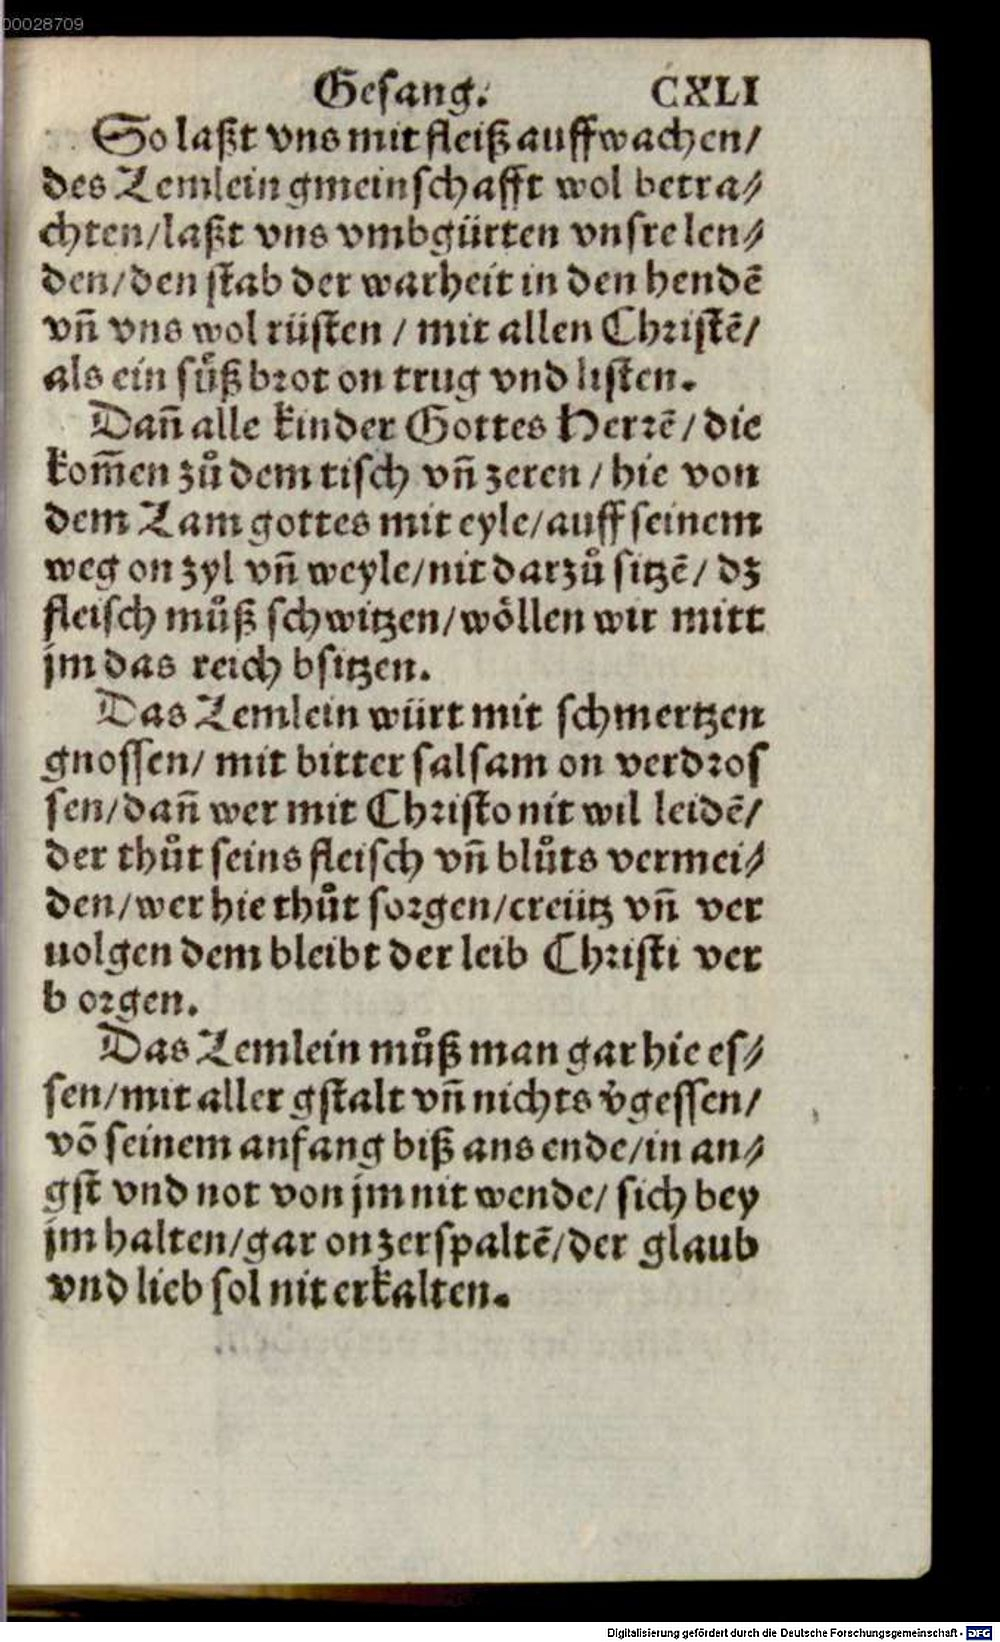 00028709
Gesang. CXLI
So laßt vns mit fleiß auffwachen/
des Lemlein gmeinschafft wol betra⸗
chten/laßt vns vmbgürten vnsre len⸗
den/den stab der warheit in den hendē
vñ vns wol rüsten / mit allen Christē/
als ein suͤß brot on trug vnd listen.
Dañ alle kinder Gottes Herrē/ die
kom̃en zů dem tisch vñ zeren / hie von
dem Lam gottes mit eyle/auff seinem
weg on zyl vñ weyle/nit darzů sitzē/ dz
fleisch můß schwitzen/woͤllen wir mitt
jm das reich bsitzen.
Das Lemlein würt mit schmertzen
gnossen/ mit bitter salsam on verdros
sen/dañ wer mit Christo nit wil leidē/
der thůt seins fleisch vñ blůts vermei⸗
den/wer hie thůt sorgen/creütz vñ ver
uolgen dem bleibt der leib Christi ver
b orgen.
Das Lemlein můß man gar hie es⸗
sen/mit aller gstalt vñ nichts v̉gessen/
võ seinem anfang biß ans ende/in an⸗
gst vnd not von jm nit wende/ sich bey
jm halten/gar on zerspaltē/der glaub
vnd lieb sol nit erkalten.
Digitalisierung gefördert durch die Deutsche Forschungsgemeinschaft - DFG